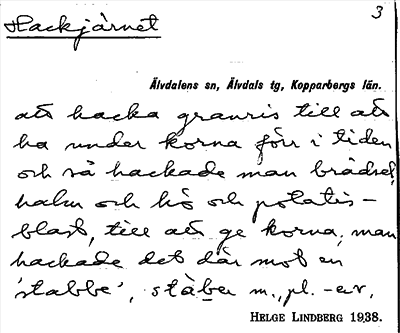 Hackjärnet
3
Älvdalens sn, Älvdals tg, Kopparbergs län.
att hacka granris till att
ha under korna förr i tiden
och så hackade man brådsel,
halm och hö och potatis-
blast, till att ge korna, man
hackade det där mot en
'stabbe', stàbe m., pl. -er,
HELGE LINDBERG 1938.